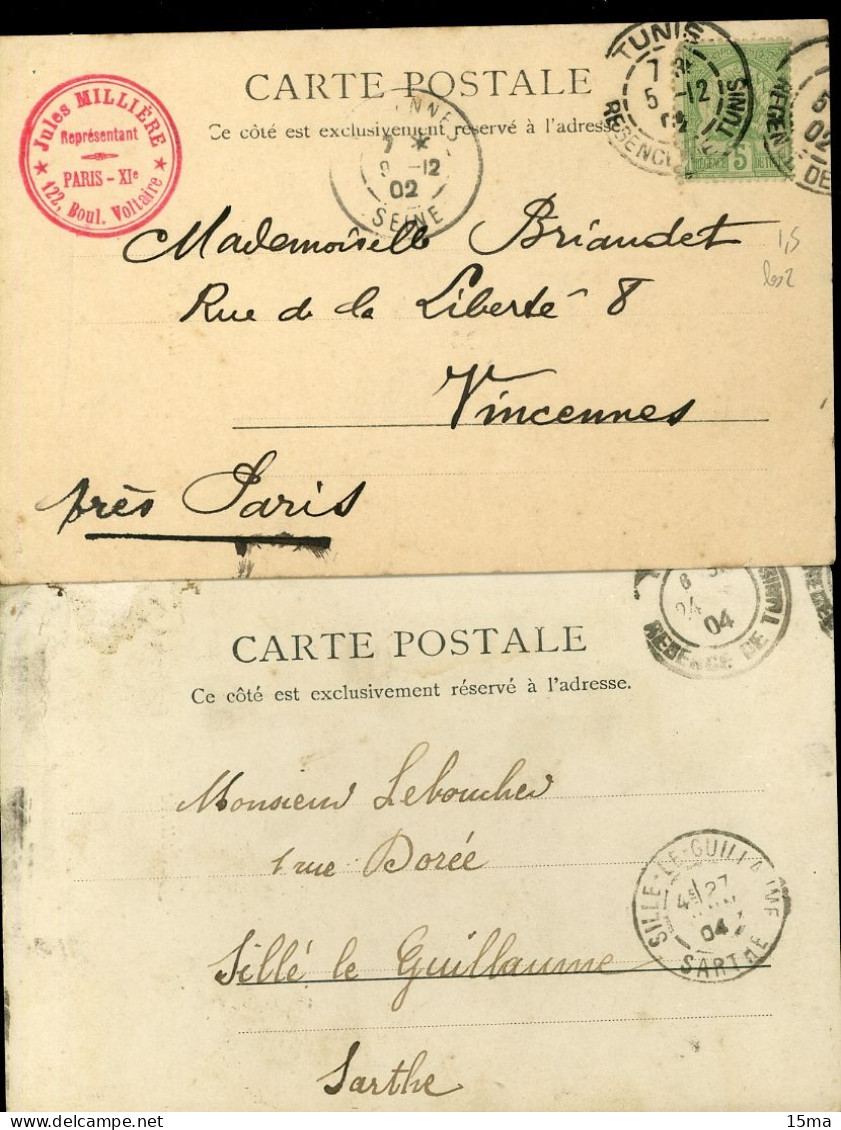 CARTE POSTALE
Ce côté est exclusivement réservé à l'adresse.
★ Jules MILLIÈRE ★
Représentant
PARIS - XIe
122, Boul. Voltaire
NNES
7 *
9 -12
02
SEINE
TUNIS
7
5 -12
02
TUNIS
5
5
02
DE
Mademoiselle Briaudet
Rue de la Liberté 8
Vincennes
près Paris
1,5
les 2
04
REGENCE DE
CARTE POSTALE
Ce côté est exclusivement réservé à l'adresse.
Monsieur Leboucher
1 rue Dorée
Sillé le Guillaume
Sarthe
SILLE-LE-GUILLAUME
4E 27
04
SARTHE
15ma